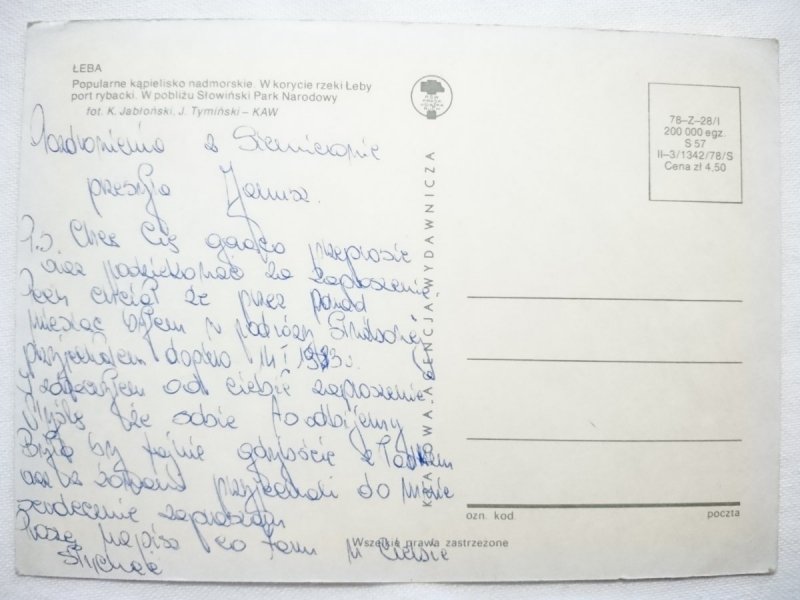 ŁEBA
Popularne kąpielisko nadmorskie. W korycie rzeki Łeby
port rybacki. W pobliżu Słowiński Park Narodowy
fot. K. Jabłoński, J. Tymiński – KAW
78–Z–28/I
200 000 egz.
S 57
II–3/1342/78/S
Cena zł 4,50
KRAJOWA AGENCJA WYDAWNICZA
Pozdrowienia z
przesyła Janusz.
P.S. Chcę Cię gorąco przeprosić
oraz podziękować za zaproszenie
chciał że przez ponad
miesiąc byłem w podróży służbowej
przyjechałem dopiero 11 I 1983r.
i zastałem od ciebie zaproszenie.
Myślę że sobie to odbijemy
Było by fajnie gdybyście z
oraz z przyjechali do mnie
serdecznie zapraszam
Proszę napisz co tam u Ciebie
słychać
ozn. kod poczta
Wszelkie prawa zastrzeżone